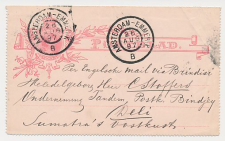 AMSTERDAM-EMMERIK
B
AMSTERDAM-EMMERIK
B
POSTBLAD.
Per Engelsche mail via Brindisi
Weledelgeboren Heer
C Stoffers
Onderneming Tandem, Postk. Bindjey
Deli
Sumatra's Oostkust.